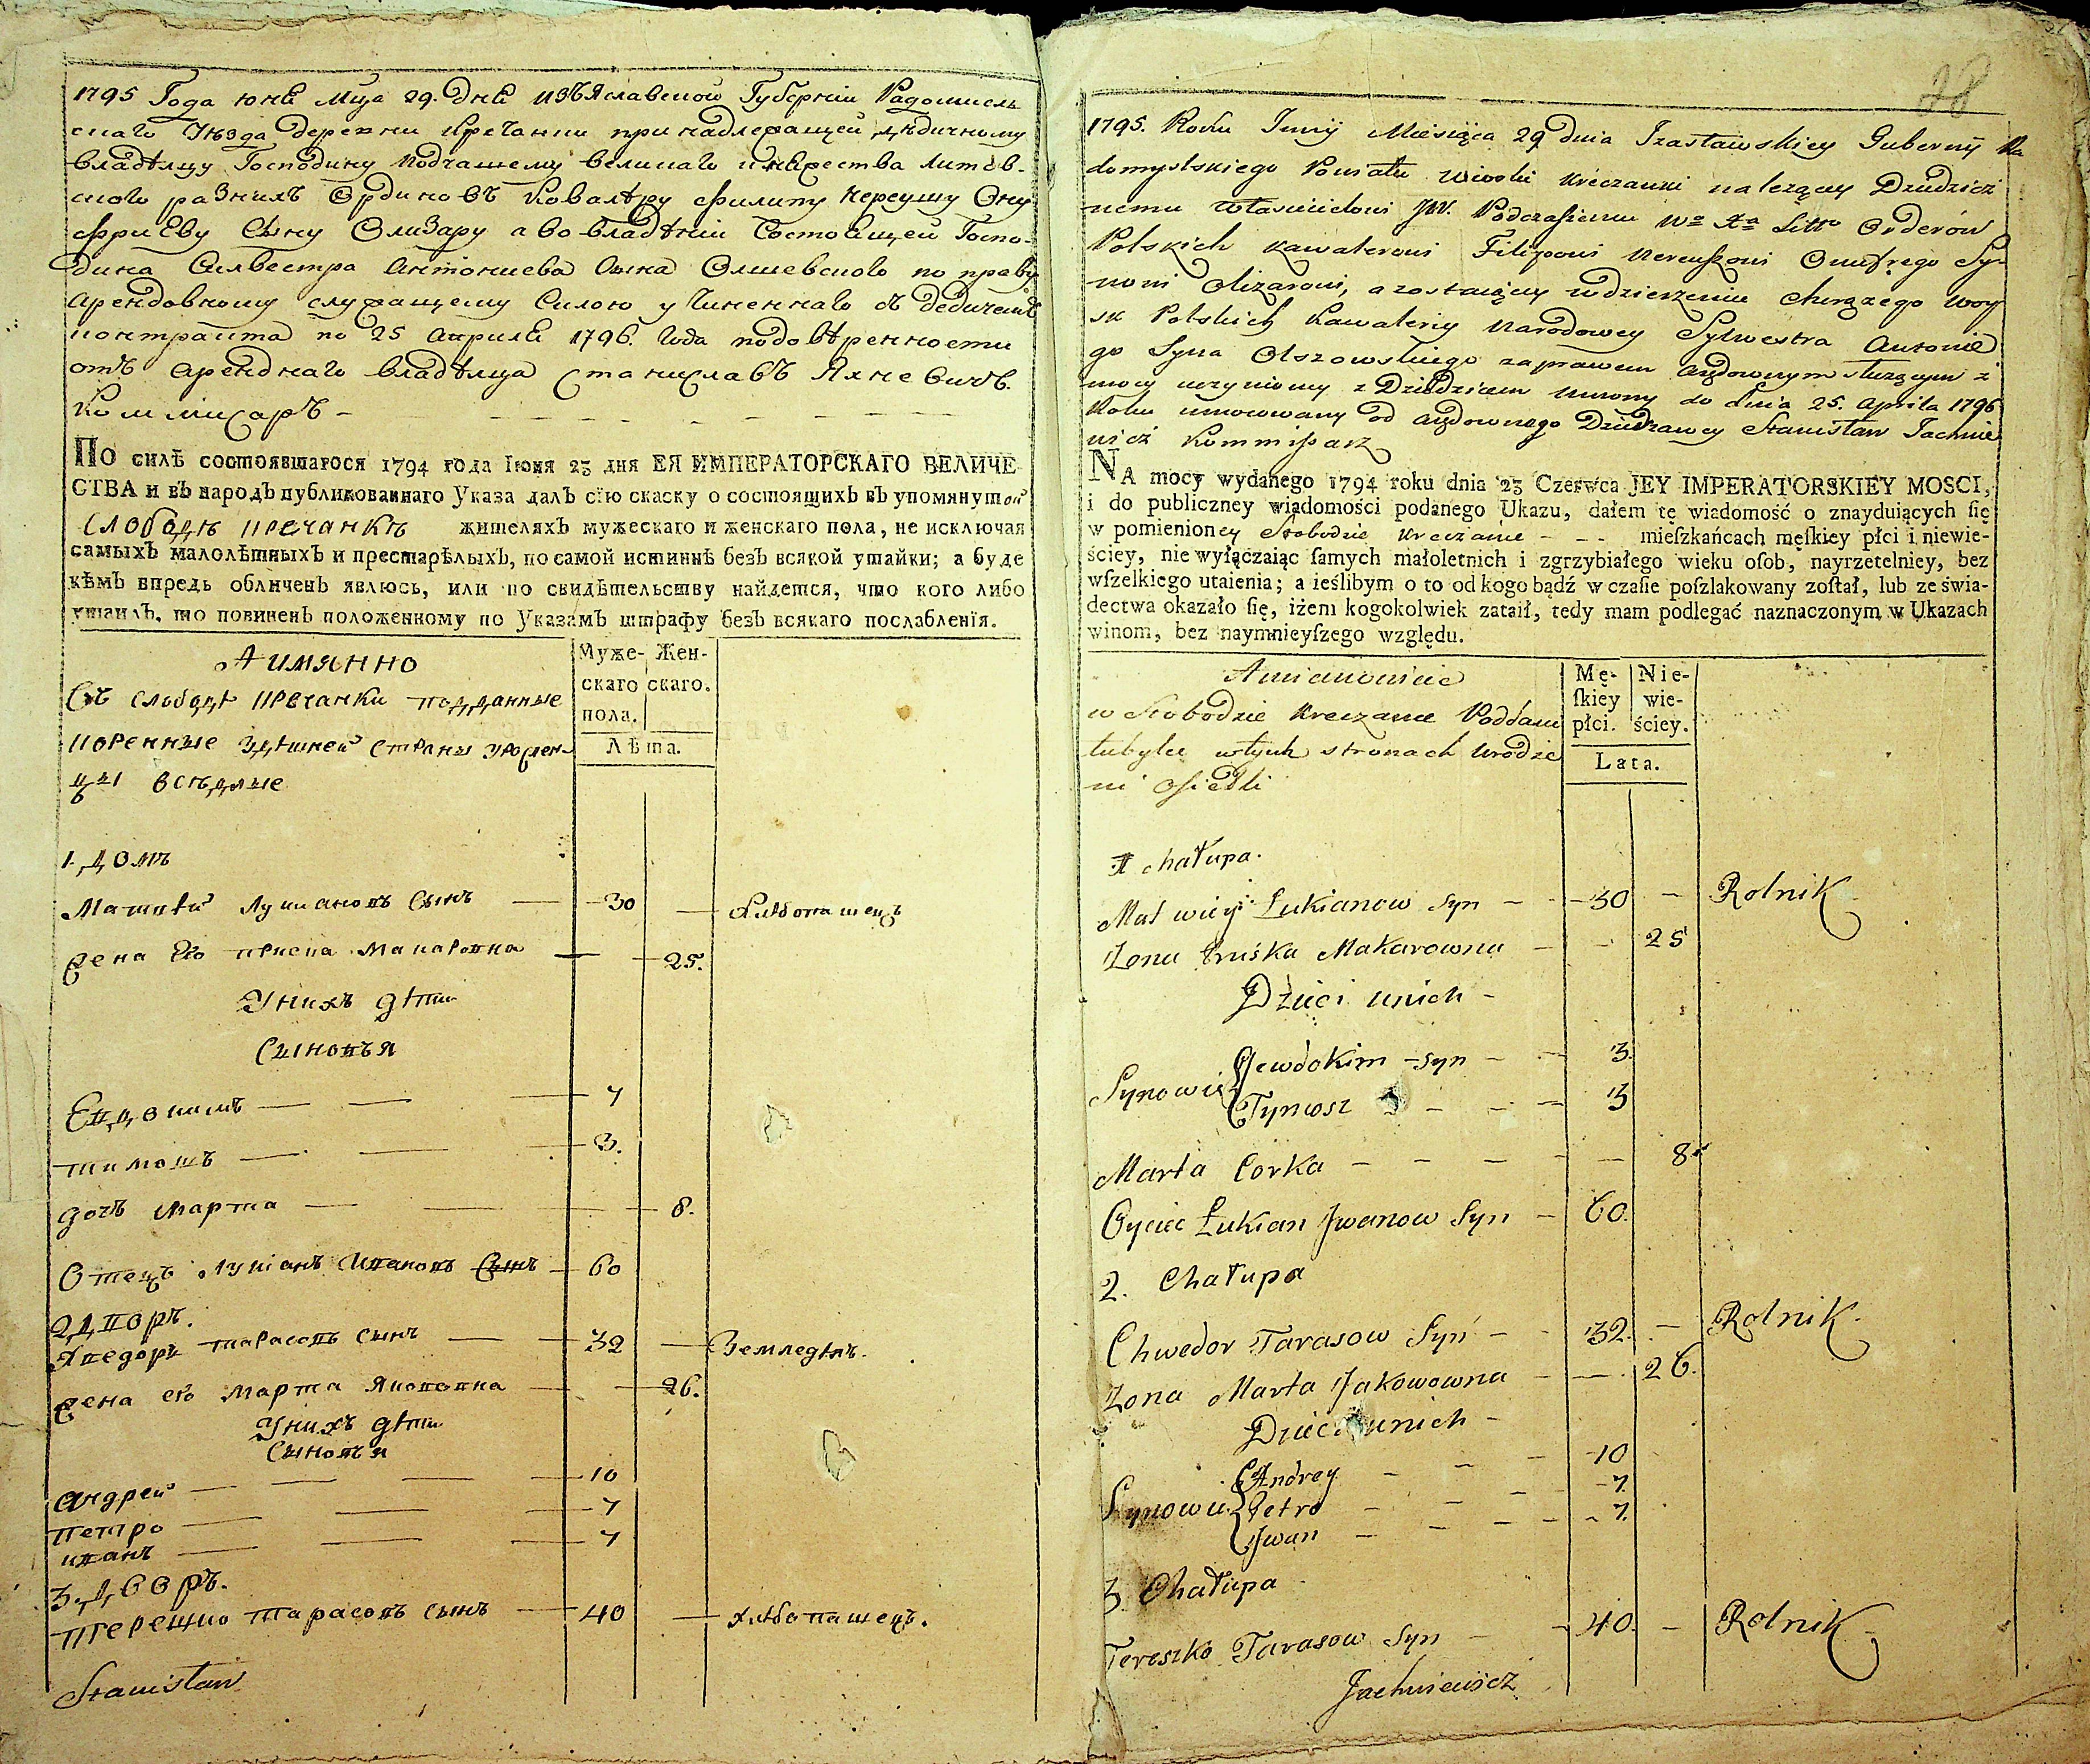 1795 Года юня Мца 29. дня изъяславской Губерніи Радомисль
скаго Уѣзда деревни Кречанки принадлежащей дѣдичному
владѣлцу Господину Подчашему великаго княжества Литов-
ского разнихъ Ординовъ Ковалѣру Филипу Нереушу Ону
фриеву сыну Олизару а во владѣнии состоящей Госпо-
дина Силвестра Антониева сына Олшевского по праву
Арендовному служащему силою учиненнаго съ дѣдичемъ
контракта по 25 априля 1796. Года по довѣренности
отъ арендного владѣлца Станиславъ Яхневичъ.
Коммисаръ -
ПО силѣ состоявшагося 1794 года Іюня 23 дня ЕЯ ИМПЕРАТОРСКАГО ВЕЛИЧЕ
СТВА и въ народъ публикованнаго Указа далъ сїю скаску о состоящихъ въ упомянутой
Слободѣ Кречанкѣ жителяхъ мужескаго и женскаго пола, не исключая
самыхъ малолѣтныхъ и престарѣлыхъ, по самой истиннѣ безъ всякой утайки; а буде
кѣмъ впредь обличенъ явлюсь, или по свидѣтельству найдется, что кого либо
утаилъ, то повиненъ положенному по Указамъ штрафу безъ всякаго послабленїя.
Аимянно
Муже- Жен-
скаго скаго.
пола.
Лѣта.
Въ слободѣ Кречанки подданные
коренные здѣшней страны урожен-
цы осѣдлые
1. домъ
Матвѣй Лукиановъ сынъ — 30 — Хлѣбопашецъ
жена его Приска Макаровна — 25.
У нихъ дѣти
Сыновья
Евдокимъ — 7
Тимошъ — 3.
дочъ Марта — 8.
Отецъ Лукіанъ Ивановъ сынъ — 60
2 дворъ.
Хведоръ Тарасовъ сынъ — 32 — Земледѣл.
жена его Марта Якововна — 26.
У нихъ дѣти
Сыновья
Андрей — 10
Петро — 7
Иванъ — 7
3. дворъ.
Терешко Тарасовъ сынъ — 40 — Хлѣбопашецъ.
Stanisław
28
1795. Roku Junij Miesiąca 29 dnia Izasławskiey Gubernij Ra
domyslskiego Powiatu wioski Kreczanki należącey Dziedzicz
nemu włascicielowi JW. Podczaszemu Wo Xa Litto Orderów
Polskich Kawalerowi Filipowi Nereuszowi Onufrego Sy-
nowi Olizarowi, a zostaiącey w dzierżeniu Chorążego Woy
sk Polskich Kawaleryi Narodowey Sylwestra Antonie
go Syna Olszowskiego za prawem Arędownym służącym z
mocy uczynioney z Dziedzicem umowy do dnia 25. Aprila 1796
Roku umocowany od Arędownego Dzierżawcy Stanisław Jachnie
wicz Kommissarz
NA mocy wydanego 1794 roku dnia 23 Czerwca JEY IMPERATORSKIEY MOSCI,
i do publiczney wiadomości podanego Ukazu, dałem tę wiadomość o znayduiących ſię
w pomienioney Słobodzie Kreczance - - - mieſzkańcach męſkiey płci i niewie-
ściey, nie wyłączaiąc ſamych małoletnich i zgrzybiałego wieku oſob, nayrzetelniey, bez
wſzelkiego utaienia; a ieślibym o to od kogo bądź w czaſie poſzlakowany zoſtał, lub ze świa-
dectwa okazało ſię, iżem kogokolwiek zataił, tedy mam podlegać naznaczonym w Ukazach
winom, bez naymnieyſzego względu.
Amianowicie
Mę- Nie-
ſkiey wie-
płci. ściey.
Lata.
w Słobodzie Kreczance Poddani
tubylce w tych stronach urodze
ni Osiedli
1 chałupa.
Matwiey Łukianow Syn - - 30 - Rolnik
Zona Pruśka Makarowna - - 25
Dzieci u nich -
Synowie
Jewdokim - syn - - 3.
Tymosz - - - 3
Marta Corka - - - - 8.
Oyciec Łukian Jwanow Syn - 60.
2. Chałupa
Chwedor Tarasow Syn - 32. - Rolnik.
Zona Marta Jakowowna - - 26.
Dzieci u nich -
Synowie
Andrey - - - 10
Petro - - - 7.
Jwan - - - 7.
3 Chałupa
Tereszko Tarasow Syn - 40. - Rolnik
Jachniewicz